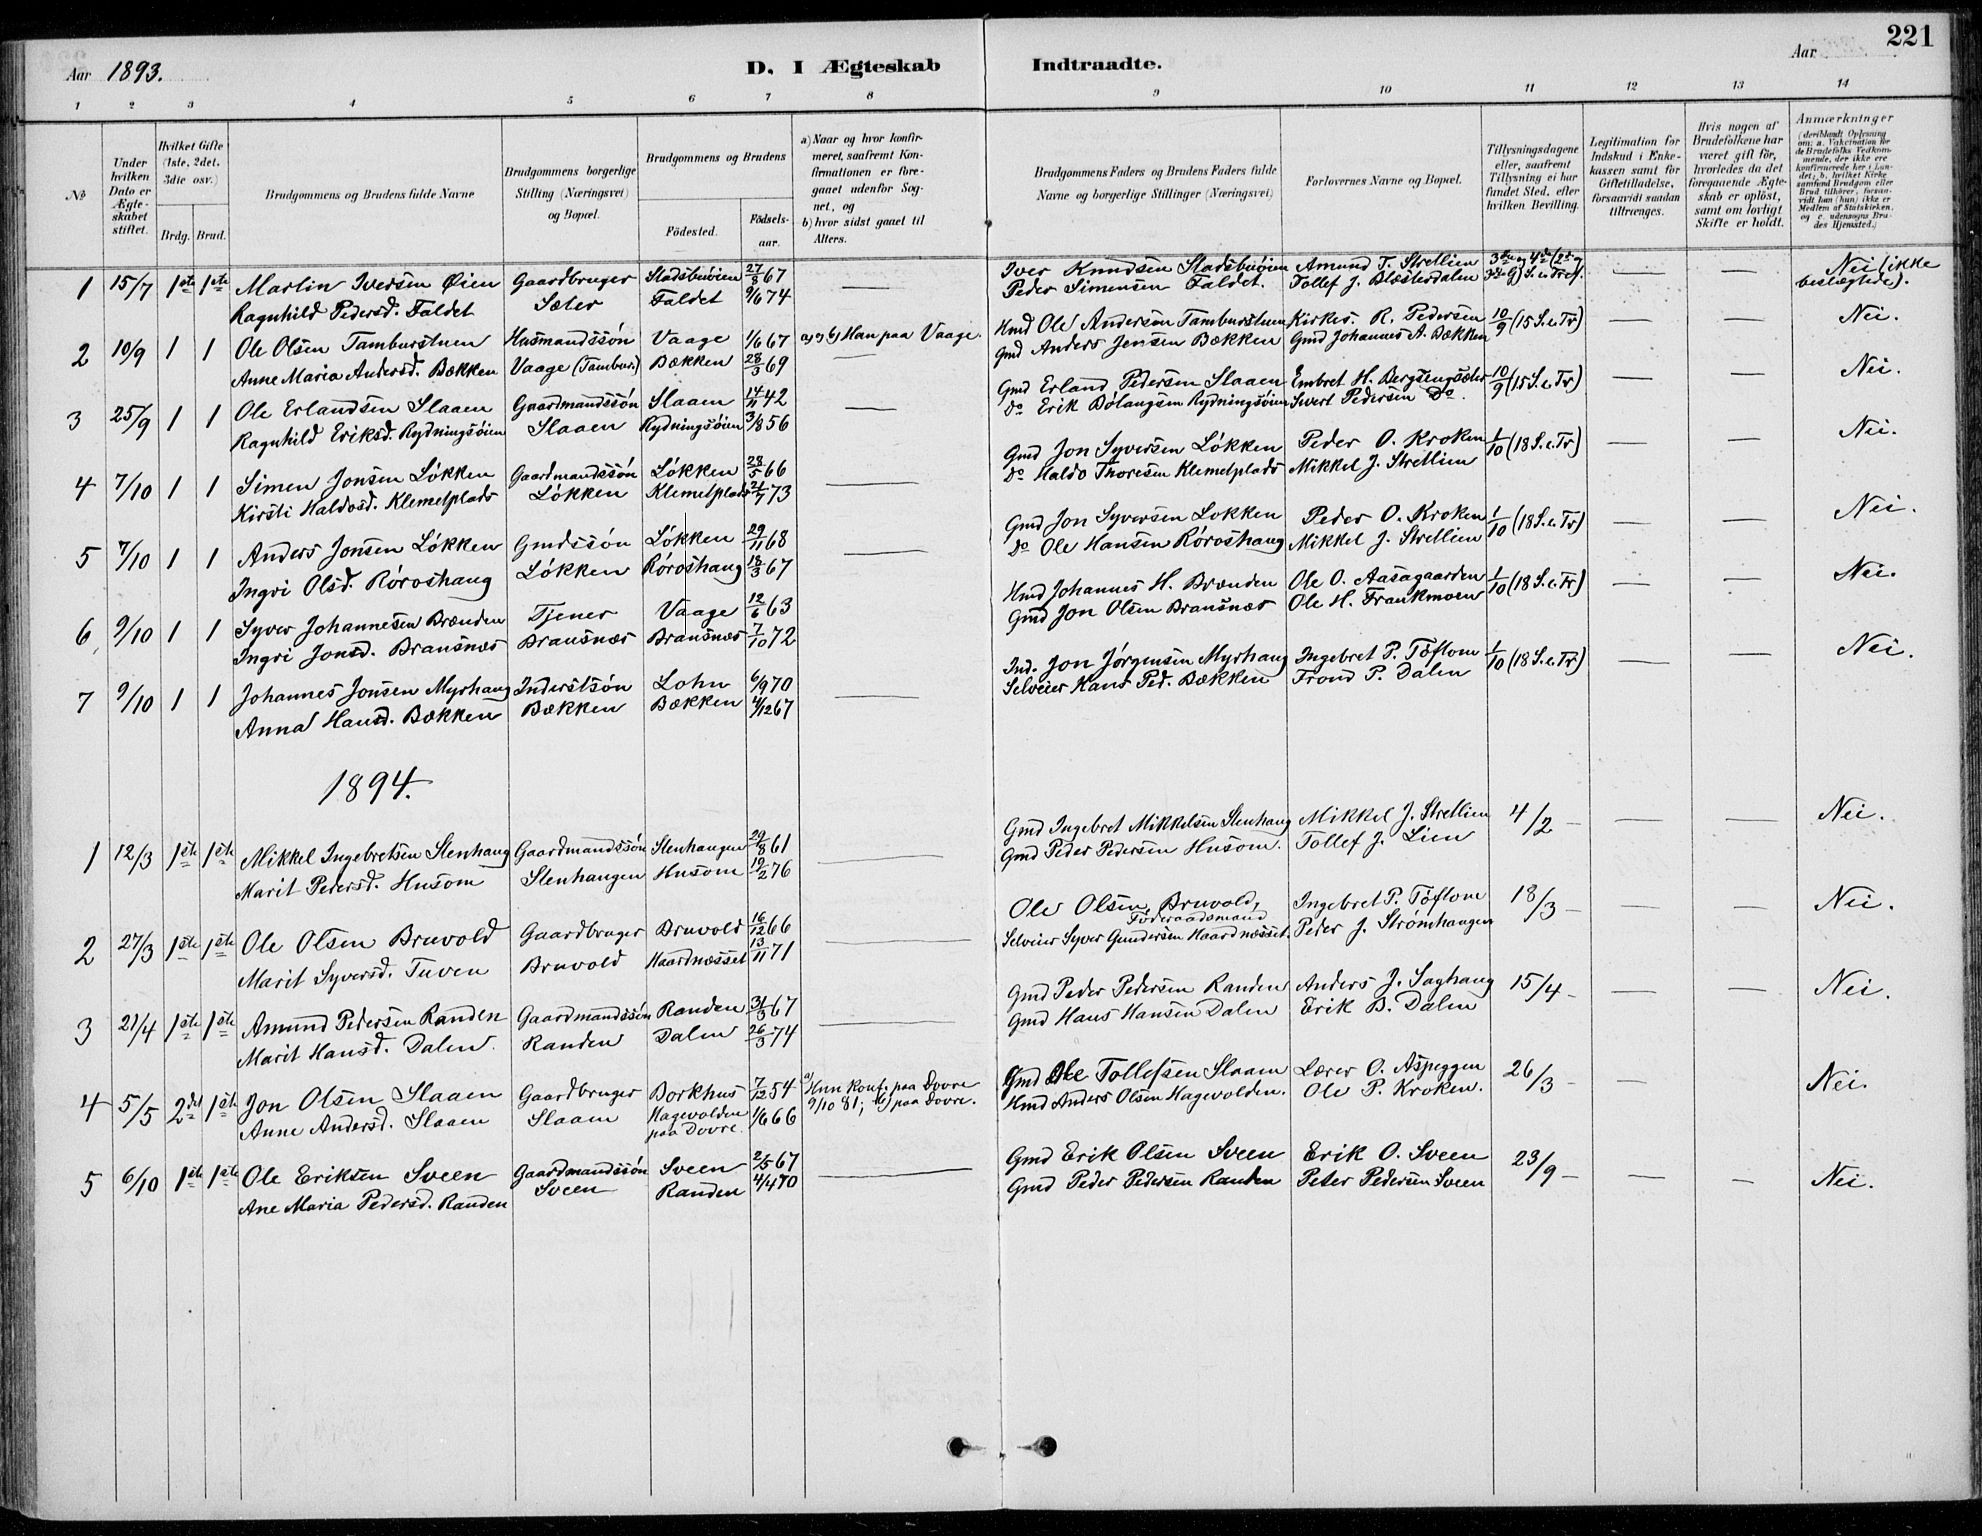 221
Aar 1893.
D. I Ægteskab Indtraadte.
Aar
1 2 3 4 5 6 7 8 9 10 11 12 13 14
No
Under hvilken Dato er Ægteskabet stiftet.
Hvilket Gifte (1ste, 2det, 3die osv.)
Brdg. Brud.
Brudgommens og Brudens fulde Navne
Brudgommens borgerlige Stilling (Næringsvei) og Bopæl.
Brudgommens og Brudens
Fødested.
Fødselsaar.
a) Naar og hvor konfirmeret, saafremt Konfirmationen er foregaaet udenfor Sognet, og
b) hvor sidst gaaet til Alters.
Brudgommens Faders og Brudens Faders fulde Navne og borgerlige Stillinger (Næringsvei)
Forlovernes Navne og Bopæl.
Tillysningsdagene eller, saafremt Tillysning ei har fundet Sted, efter hvilken Bevilling.
Legitimation for Indskud i Enkekassen samt for Giftetilladelse, forsaavidt saadan tiltrænges.
Hvis nogen af Brudefolkene har været gift før, hvorledes da det foregaaende Ægteskab er opløst, samt om lovligt Skifte er holdt.
Anmærkninger
(deriblandt Oplysning om: a. Vakcination for de Brudefolks Vedkommende, der ikke ere konfirmerede her i Landet; b. hvilket Kirkesamfund Brudgom eller Brud tilhører, forsaavidt han (hun) ikke er Medlem af Statskirken, og c. udensogns Brudes Hjemsted.)
1 15/7 1ste 1ste Martin Iversen Øien Gaardbruger Stadsbuøien 27/8 67 — Iver Knudsen Stadsbuøien Amund T. Strellien — — Nei (ikke
Ragnhild Pedersd. Faldet Sæter Faldet 9/6 74 Peder Simensen Faldet. Tollef J. Blæsterdalen beslægtede).
2 10/9 1 1 Ole Olsen Tamburstuen Husmandssøn Vaage 1/6 67 a) og b) Han paa Vaage. Hmd Ole Andersen Tamburstuen Kirkes. R. Pedersen 10/9 (15 S. e. Tr) — — Nei.
Anne Maria Andersd. Bækken Vaage (Tambur.) Bækken 28/3 69 — Gmd Anders Jensen Bækken Gmd Johannes A. Bækken
3 25/9 1 1 Ole Erlandsen Slaaen Gaardmandssøn Slaaen 14/11 42 — Gmd Erland Pedersen Slaaen Embret H. Bergsengsæter 10/9 (15 S. e. Tr) — — Nei.
Ragnhild Eriksd. Rydningsøien Slaaen Rydningsøien 3/8 56 Do Erik Rydningsøien Sivert Pedersen Do
4 7/10 1 1 Simen Jonsen Løkken Gaardmandssøn Løkken 28/5 66 — Gmd Jon Syversen Løkken Peder O. Kroken 1/10 (18 S. e. Tr) — — Nei.
Kirsti Haldosd. Klemetplads Løkken Klemetplads 21/7 73 Do Haldo Thoresen Klemetplads Mikkel J. Strellien
5 7/10 1 1 Anders Jonsen Løkken Gmdssøn Løkken 29/11 68 — Gmd Jon Syversen Løkken Peder O. Kroken 1/10 (18 S. e. Tr) — — Nei.
Ingri Olsd. Røroshaug Løkken Røroshaug 18/3 67 Do Ole Hansen Røroshaug Mikkel J. Strellien
6 9/10 1 1 Syver Johannesen Brænden Tjener Vaage 12/6 63 Hmd Johannes H. Brænden Ole O. Aasagaarden 1/10 (18 S. e. Tr) — — Nei.
Ingri Jonsd. Bransnæs Bransnæs Bransnæs 7/10 72 Gmd Jon Olsen Bransnæs Ole H. Frankmoen
7 9/10 1 1 Johannes Jonsen Myrhaug Inderstsøn Lohn 6/9 70 — Ind. Jon Jørgensen Myrhaug Ingebret P. Tøftom 1/10 (18 S. e. Tr) — — Nei.
Anna Hansd. Bækken Bækken Bækken 4/12 67 Selveier Hans Ped. Bækken Trond P. Dalen
1894.
1 12/3 1ste 1ste Mikkel Ingebretsen Stenhaug Gaardmandssøn Stenhaugen 29/8 61 — Gmd Ingebret Mikkelsen Stenhaug Mikkel J. Strellien 4/2 — — — Nei.
Marit Pedersd. Husom Stenhaugen Husom 19/2 76 Gmd Peder Pedersen Husom. Tollef J. Lien
2 27/3 1ste 1ste Ole Olsen Bruvold Gaardbruger Bruvold 16/12 66 — Ole Olsen Bruvold, Føderaadsmand Ingebret P. Tøftom 18/3 — — — Nei.
Marit Syversd. Tuven Bruvold Haardnæsset 13/11 71 Selveier Syver Gundersen Haardnæsset. Peder J. Strømhaugen
3 21/4 1ste 1ste Amund Pedersen Randen Gaardmandssøn Randen 31/3 67 — Gmd Peder Pedersen Randen Anders J. Saghaug 15/4 — — — Nei.
Marit Hansd. Dalen. Randen Dalen 26/3 74 Gmd Hans Hansen Dalen Erik B. Dalen
4 5/5 2det 1ste Jon Olsen Slaaen Gaardbruger Borkhus 7/12 54 a) Hun konf. paa Dovre Gmd Ole Tollefsen Slaaen Lærer O. Aspeggen 26/3 — Nei.
Anne Andersd. Slaaen Slaaen Hagevolden paa Dovre. 1/6 66 9/10 81; b) paa Dovre. Hmd Anders Olsen Hagevolden. Ole P. Kroken.
5 6/10 1ste 1ste Ole Eriksen Sveen Gaardmandssøn Sveen 2/5 67 — Gmd Erik Olsen Sveen Erik O. Sveen 23/9 — — — Nei.
Ane Maria Pedersd. Randen Sveen Randen 4/4 70 Gmd Peder Pedersen Randen Peter Pedersen Sveen